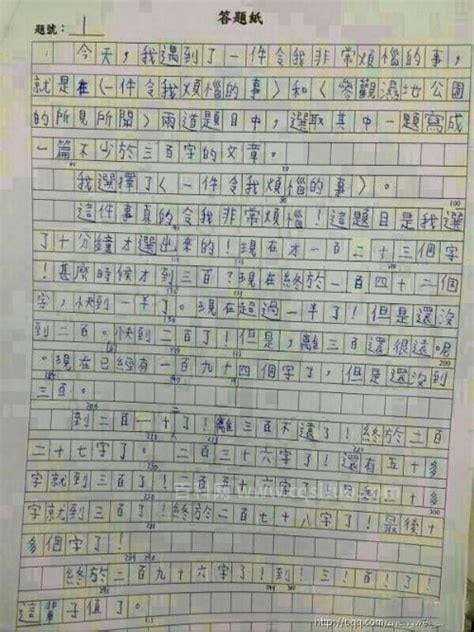 答題紙
題號：1
今天，我遇到了一件令我非常煩惱的事，
就是在〈一件令我煩惱的事〉和〈參觀濕地公園
的所見所聞〉兩道題目中，選取其中一題寫成
一篇不少於三百字的文章。
我選擇了〈一件令我煩惱的事〉。
這件事真的令我非常煩惱！這題目是我選
了十分鐘才選出來的！現在才一百二十三個字
！甚麼時候才到三百？現在終於一百四十二個
字，快到一半了。現在超過一半了！但是還沒
到二百。快到二百了！但是，離三百還很遠呢
。現在已經有一百九十四個字了，但是還沒到
三百。
到二百一十了！離三百不遠了！終於二百
二十七字了。二百三十六字了！還有五十多
字就到三百了！終於二百七十八字了！最後十
多個字了！
終於！二百九十六字了！到三百了！
這輩子值了。